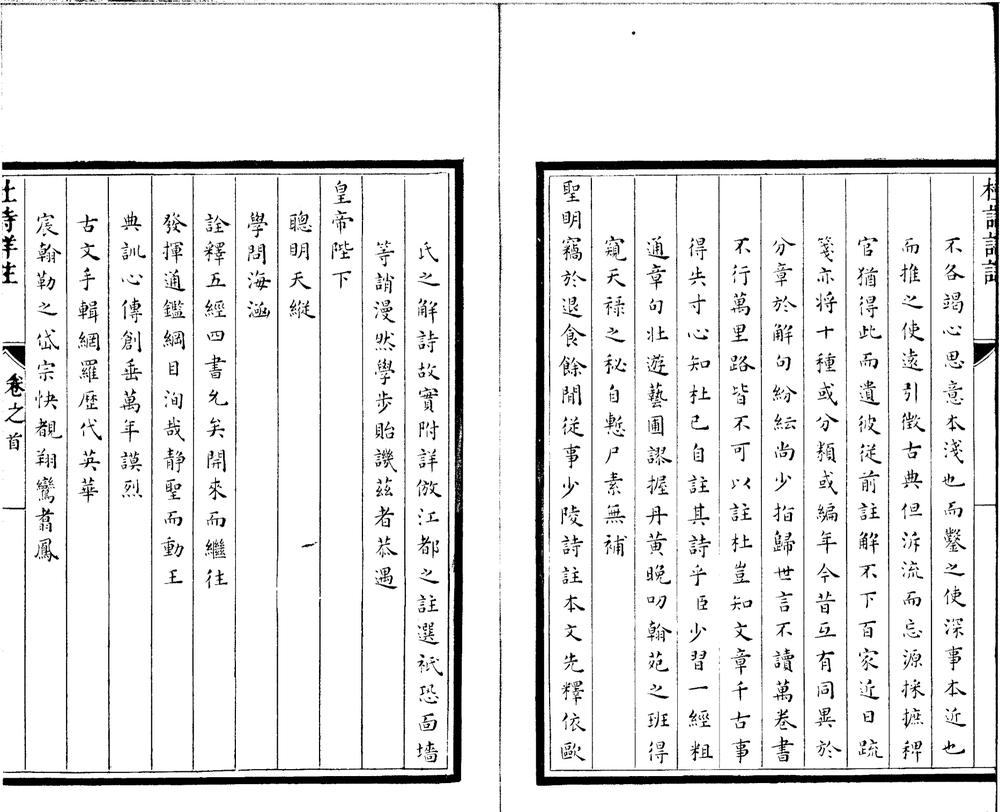 杜詩詳註
不各竭心思意本淺也而鑿之使深事本近也
而推之使遠引徵古典但泝流而忘源採摭稗
官猶得此而遺彼從前註解不下百家近日疏
箋亦將十種或分類或編年今昔互有同異於
分章於解句紛紜尚少指歸世言不讀萬卷書
不行萬里路皆不可以註杜豈知文章千古事
得失寸心知杜已自註其詩乎臣少習一經粗
通章句壯遊藝圃謬握丹黃晚叨翰苑之班得
窺天祿之秘自慙尸素無補
聖明竊於退食餘閒從事少陵詩註本文先釋依歐
氏之解詩故實附詳倣江都之註選祇恐面墻
等誚漫然學步貽譏茲者恭遇
皇帝陛下
聰明天縱
學問海涵
詮釋五經四書允矣開來而繼往
發揮通鑑綱目洵哉靜聖而動王
典訓心傳創垂萬年謨烈
古文手輯網羅歷代英華
宸翰勒之岱宗快覩翔鸞翥鳳
杜詩詳註
卷之首